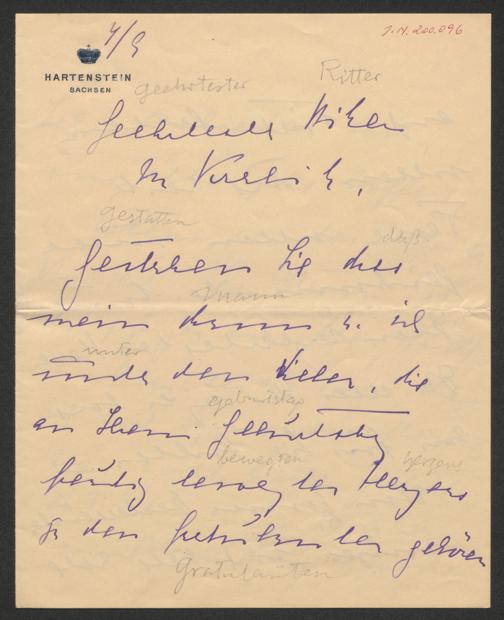 4/9
I.N. 200.096
HARTENSTEIN
SACHSEN
geehrtester Ritter
Geehrtester Ritter
gestatten
dass
Gestatten Sie dass
Mann
mein Mann u. ich
unter
unter den Vielen, die
geburtstag
an Ihrem Geburtstag
bewegten herzens
freudig bewegten Herzens
zu den Gratulanten gehören
Gratulanten